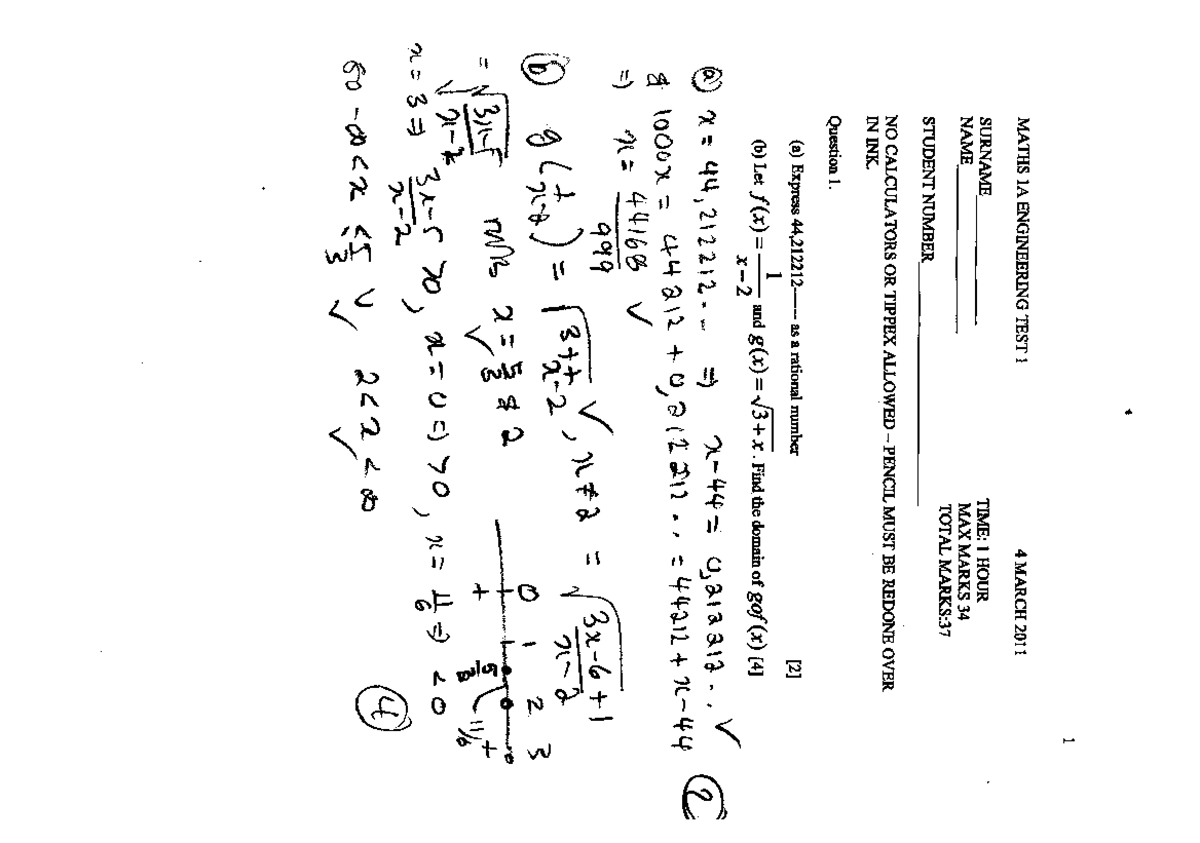 1
MATHS 1A ENGINEERING TEST 1 4 MARCH 2011
SURNAME TIME: 1 HOUR
NAME MAX MARKS 34
STUDENT NUMBER TOTAL MARKS:37
NO CALCULATORS OR TIPPEX ALLOWED – PENCIL MUST BE REDONE OVER
IN INK.
Question 1.
(a) Express 44,212212------ as a rational number [2]
(b) Let f(x) = 1/(x−2) and g(x) = √(3+x). Find the domain of gof(x) [4]
(a) x = 44,212212... ⇒ x−44 = 0,212212.. ✓
& 1000x = 44212 + 0,212212... = 44212 + x−44
⇒ x = 44168/999 ✓ (2)
(b) g(1/(x−2)) = √(3+1/(x−2)) ✓, x≠2 = √((3x−6+1)/(x−2))
= √((3x−5)/(x−2)) x = 5/3 & 2 ✓
0 1 2 3
+ 5/3 − 11/6 +
x=3 ⇒ (3x−5)/(x−2) >0, x=0 ⇒ >0, x = 11/6 ⇒ <0
so −∞ < x ≤ 5/3 ∪ 2<x<∞ ✓ ✓ (4)